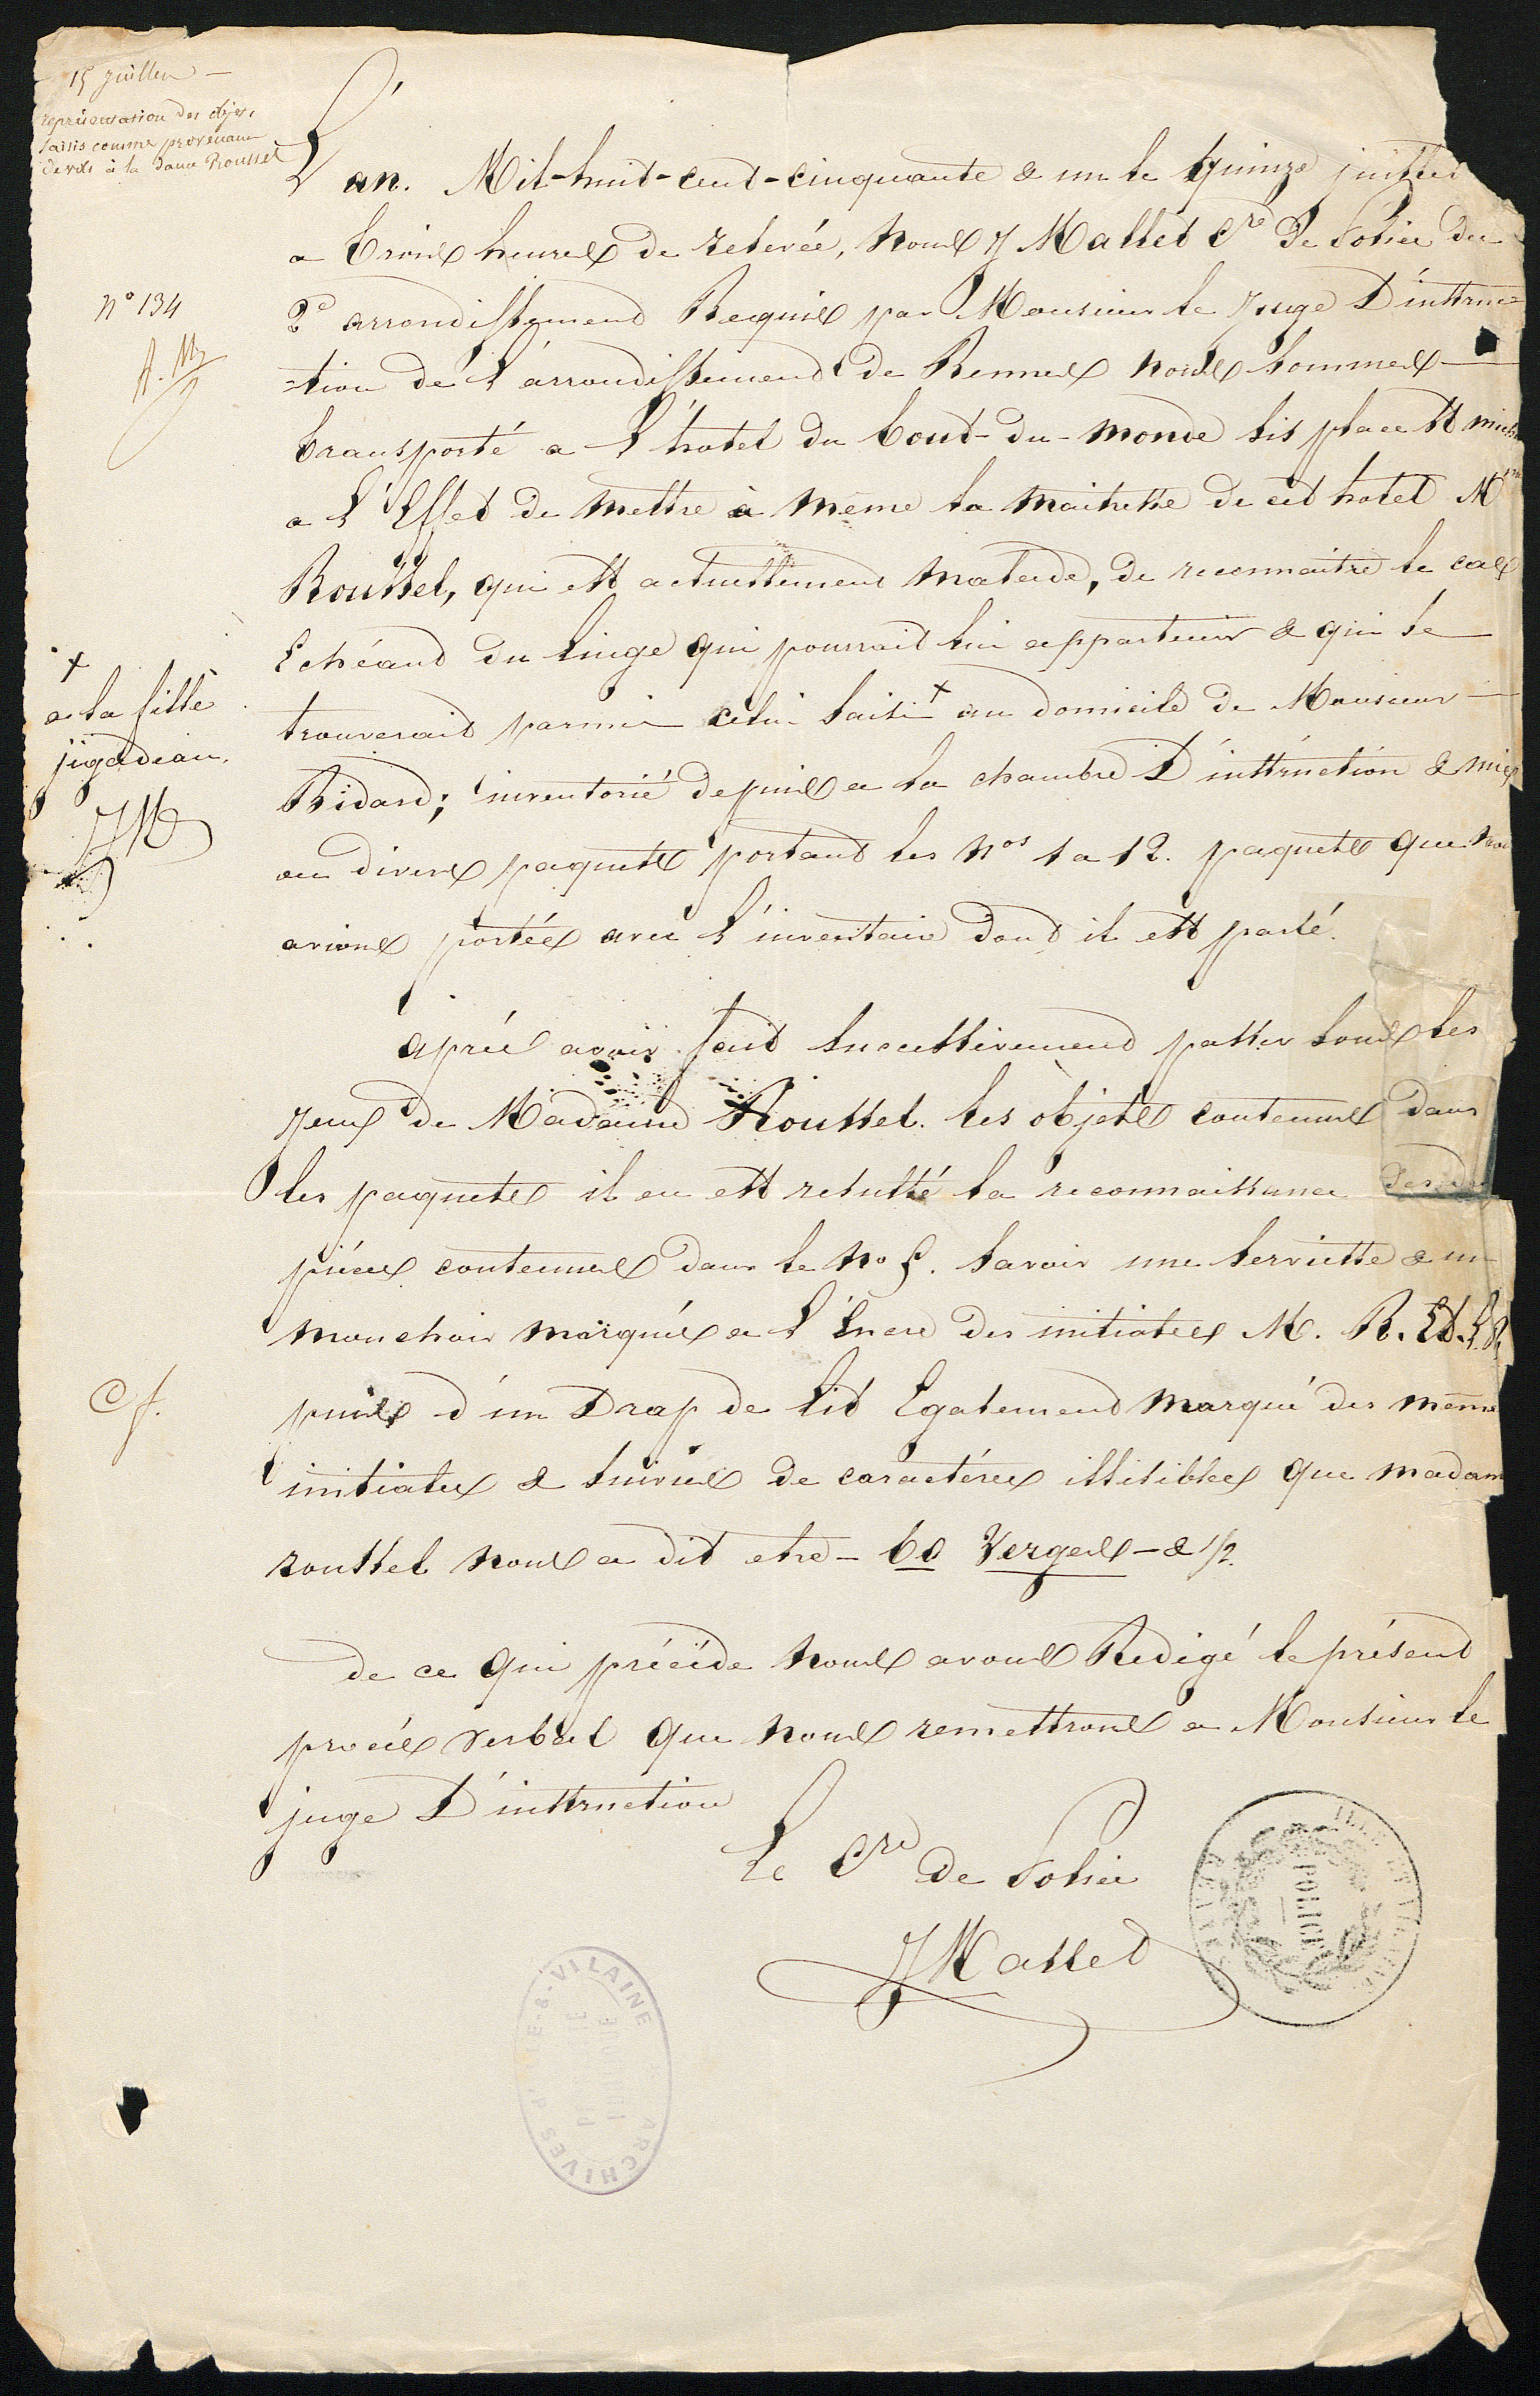 15 juillet —
représentation des objets
saisis comme provenant
de vols à la dame Roussel
L'an. Mil-huit-cent-cinquante & un le quinze juillet
a trois heures de relevée, nous J Mallet Cre de Police du
2e arrondissement Requis par Monsieur le Juge D'instruc-
n° 134
-tion de l'arrondissement de Rennes nous sommes —
transporté a l'hotel du bout-du-monde sis place St mich
a l'Effet de mettre à même la maitresse de cet hotel Mme
Roussel, qui est actuellement malade, de reconnaitre le cas
Echéant du linge qui pourrait lui appartenir & qui se
trouverait parmi celui saisi + au domicile de Monsieur —
+
a la fille
jigadeau.
JM
Bidard; inventorié depuis a la chambre D'instruction & mis
en divers paquets portant les Nos 1 a 12. paquets que nou
avions portées avec l'inventaire dont il est parlé.
aprés avoir fait successivement passer sous les
yeux de Madame Roussel. les objets contenus dans
les paquets il en est resulté la reconnaissance des
piéces contenues dans le No 5. savoir une serviette & un
mouchoir marqués a l'Encre des initiales M. R. Et. L.
Cf.
puis d'un Drap de lit Egalement marqué des même
initiales & suivies de caractéres illisibles que madam
roussel nous a dit etre - 60 Verges - & 1/2.
de ce qui précéde nous avons Redigé le présent
procés verbal que nous remettrons a Monsieur le
juge D'instruction
Le Cre de Police
JMallet
ILLE ET VILAINE
POLICE
ARCHIVES D'ILLE-&-VILAINE